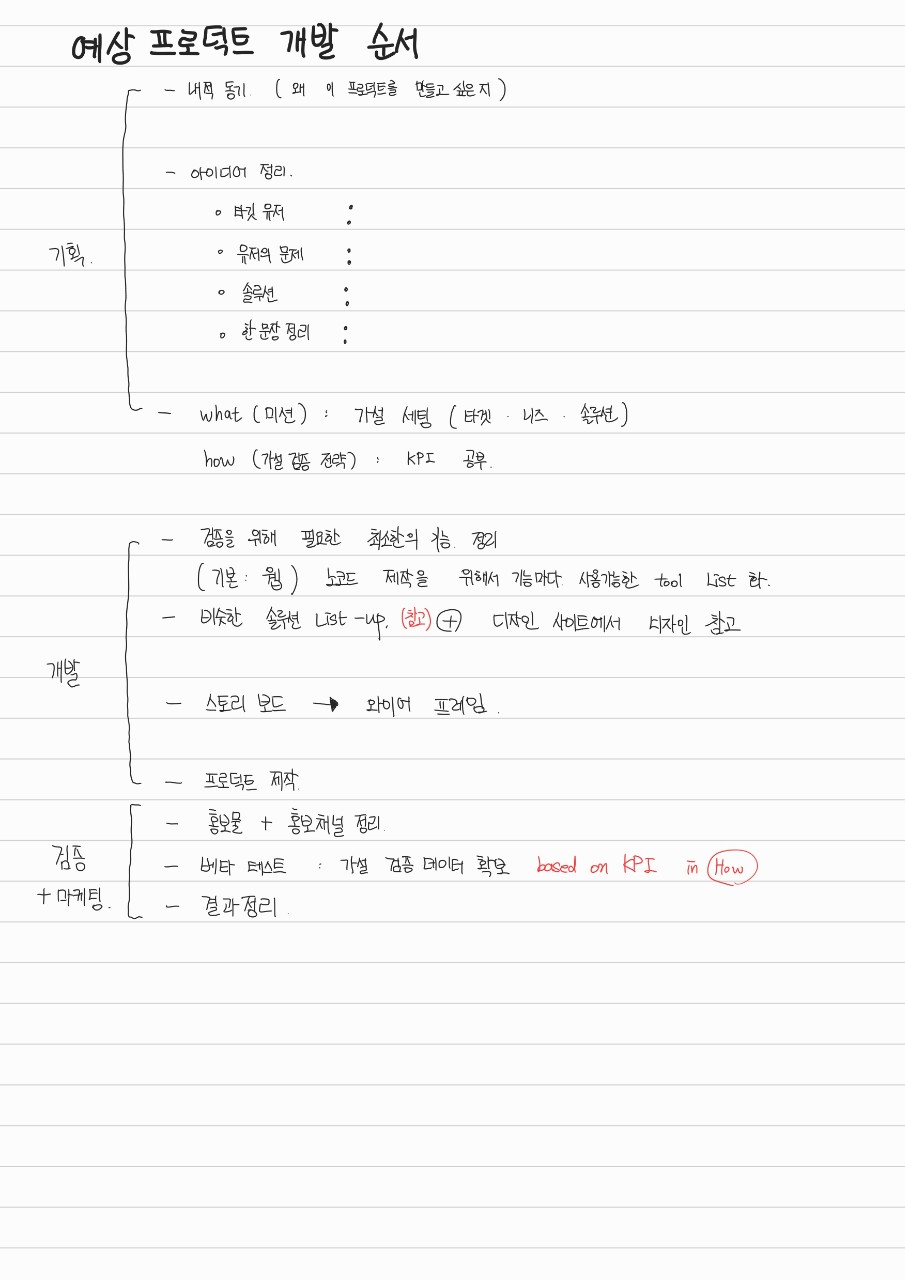 예상 프로덕트 개발 순서
- 내적 동기. (왜 이 프로덕트를 만들고 싶은지)
- 아이디어 정리.
◦ 타깃 유저 :
기획.
◦ 유저의 문제 :
◦ 솔루션 :
◦ 한 문장 정리 :
- what (미션) : 가설 세팅 (타겟 · 니즈 · 솔루션)
how (가설 검증 전략) : KPI 공부.
- 검증을 위해 필요한 최소한의 기능. 정리
(기본 : 웹) 노코드 제작을 위해서 기능마다. 사용가능한 tool List 화.
- 비슷한 솔루션 List-up. (참고) ⊕ 디자인 사이트에서 디자인 참고
개발
- 스토리 보드 → 와이어 프레임.
- 프로덕트 제작.
- 홍보물 + 홍보채널 정리.
검증
- 베타 테스트 : 가설 검증 데이터 확보 based on KPI in How
+ 마케팅.
- 결과정리.